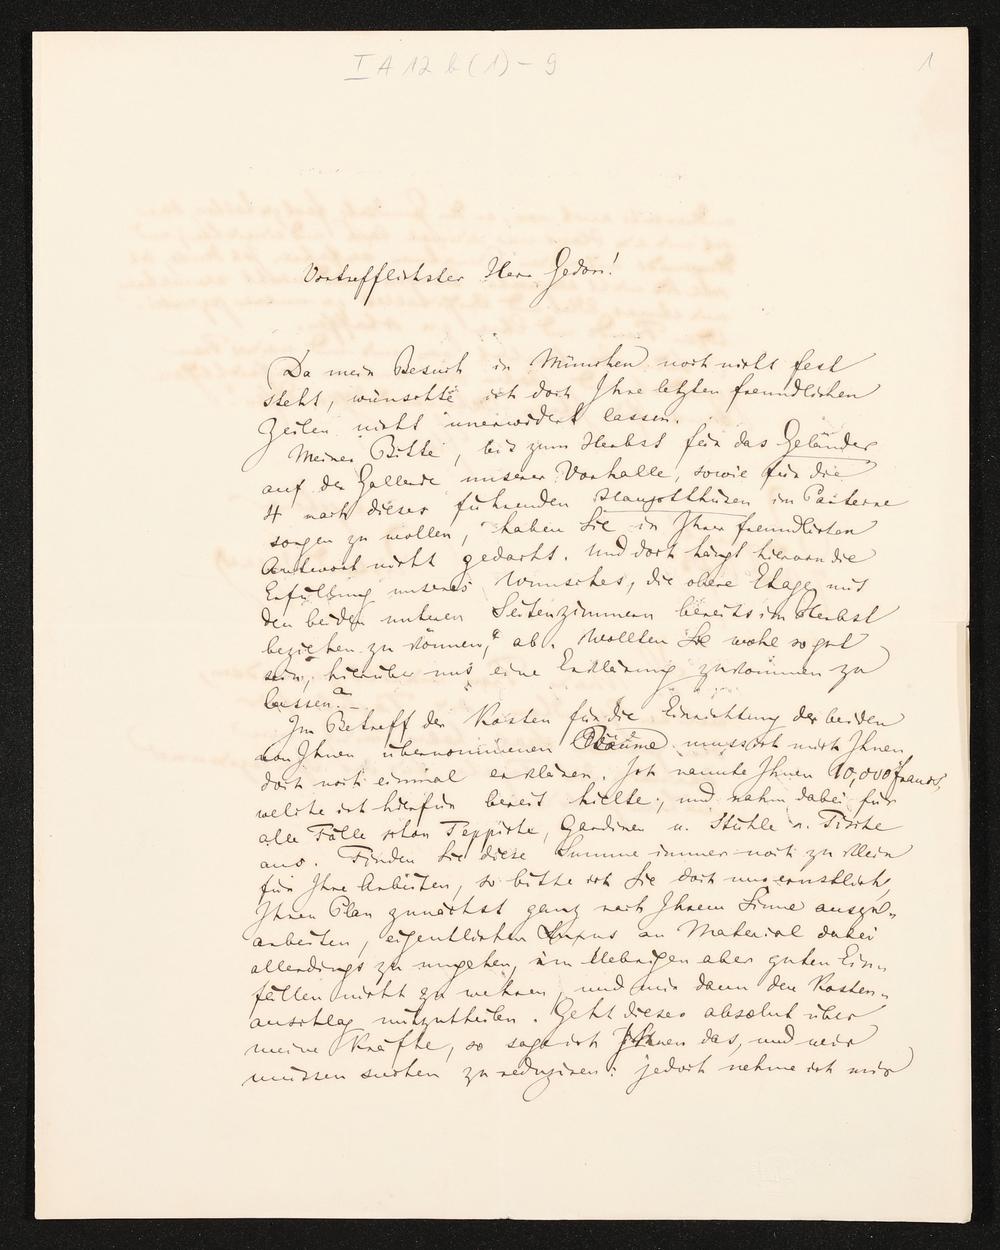 I A 12 b (1) - 9
1
Vortrefflichster Herr Gedon!
Da mein Besuch in München noch nicht fest
steht, wünschte ich doch Ihre letzten freundlichen
Zeilen nicht unerwidert lassen.
Meiner Bitte, bis zum Herbst für das Geländer
auf der Gallerie unserer Vorhalle, sowie für die
4 nach dieser führenden Hauptthüren im Parterre
sorgen zu wollen, haben Sie in Ihrer freundlichen
Antwort nicht gedacht. Und doch hängt hiervon die
Erfüllung unseres Wunsches, die obere Etage mit
den beiden unteren Seitenzimmern bereits im Herbst
beziehen zu können, ab. Wollten Sie wohl so gut
sein, hierüber mir eine Erklärung zukommen zu
lassen? –
Im Betreff der Kosten für die Einrichtung der beiden
von Ihnen übernommenen Räume muss ich mich Ihnen
doch noch einmal erklären. Ich nannte Ihnen 10,000 francs,
welche ich hierfür bereit hielte, und nahm dabei für
alle Fälle schon Teppiche, Gardinen u. Stühle u. Tische
aus. Finden Sie diese Summe immer noch zu klein
für Ihre Arbeiten, so bitte ich Sie doch nun ernstlich,
Ihren Plan zunächst ganz nach Ihrem Sinne auszu-
arbeiten, eigentlichen Luxus an Material dabei
allerdings zu umgehen, im Uebrigen aber guten Ein-
fällen nicht zu wehren, und mir dann den Kosten-
anschlag mitzutheilen. Geht dieser absolut über
meine Kräfte, so sage ich Ihnen das, und wir
müssen suchen zu reduziren: jedoch nehme ich mir